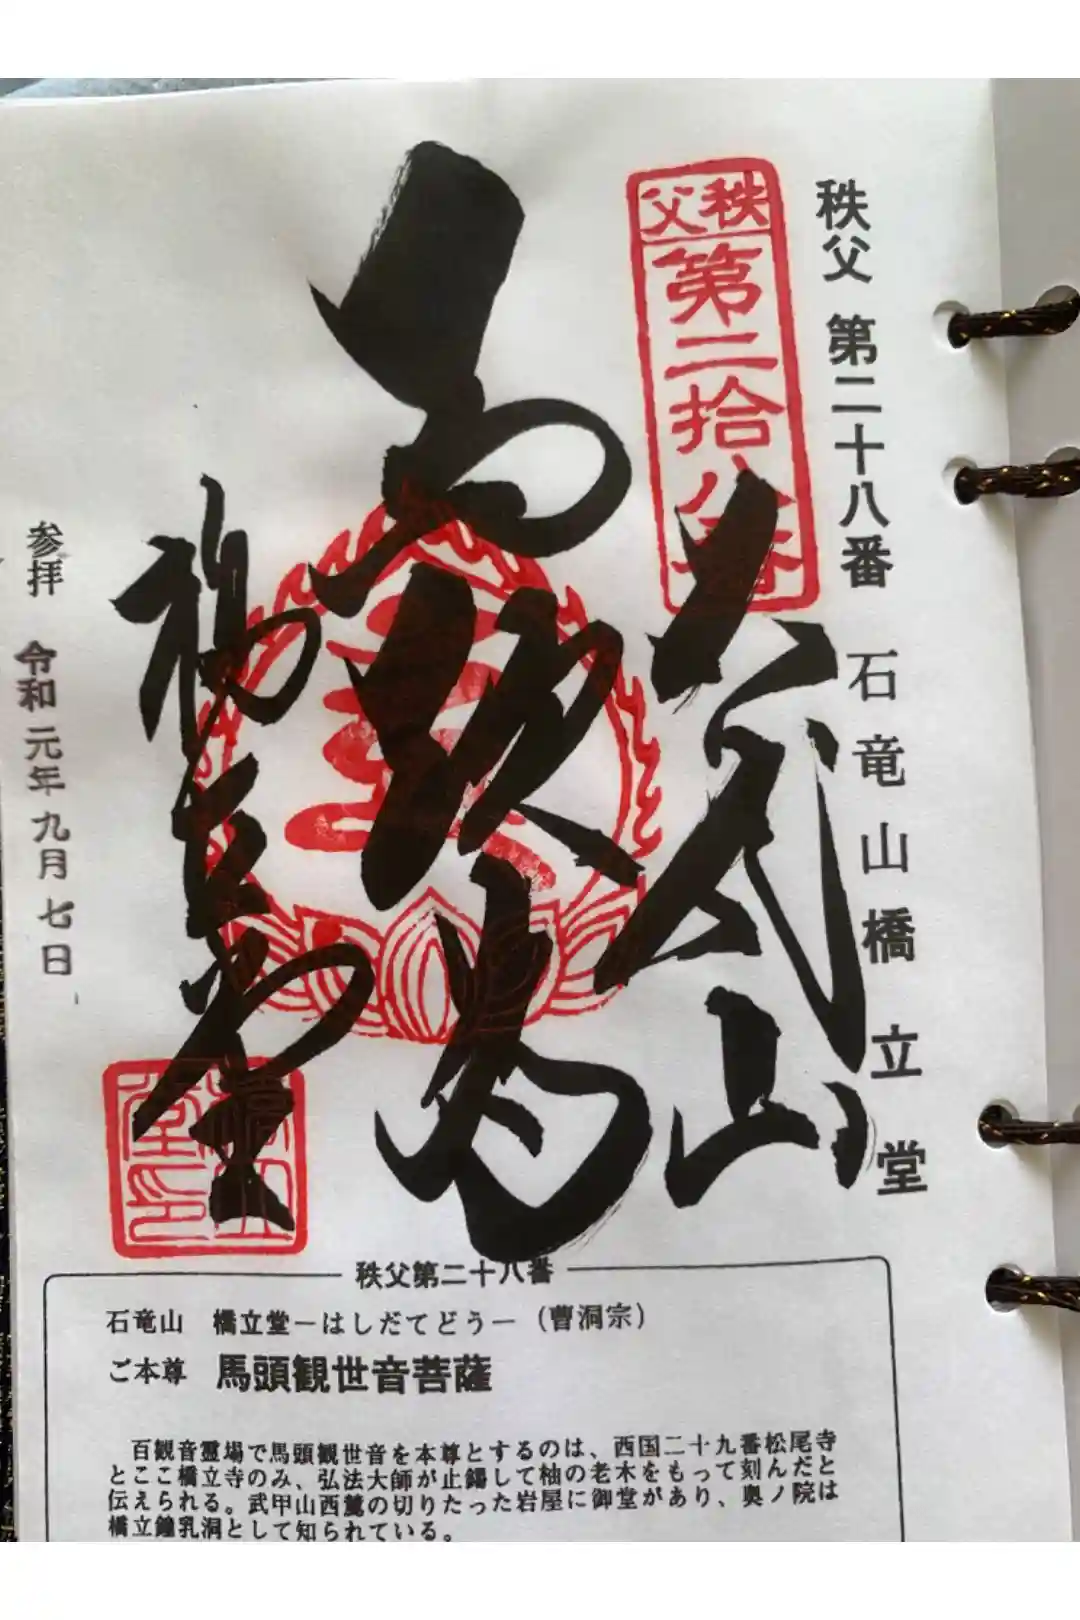 秩父 第二十八番 石竜山橋立堂
秩父
第二拾八番
石竜山
橋立堂
参拝 令和元年九月七日
秩父第二十八番
石竜山 橋立堂－はしだてどう－(曹洞宗)
ご本尊 馬頭観世音菩薩
百観音霊場で馬頭観世音を本尊とするのは、西国二十九番松尾寺
とここ橋立寺のみ、弘法大師が止錫して柚の老木をもって刻んだと
伝えられる。武甲山西麓の切りたった岩屋に御堂があり、奥ノ院は
橋立鐘乳洞として知られている。